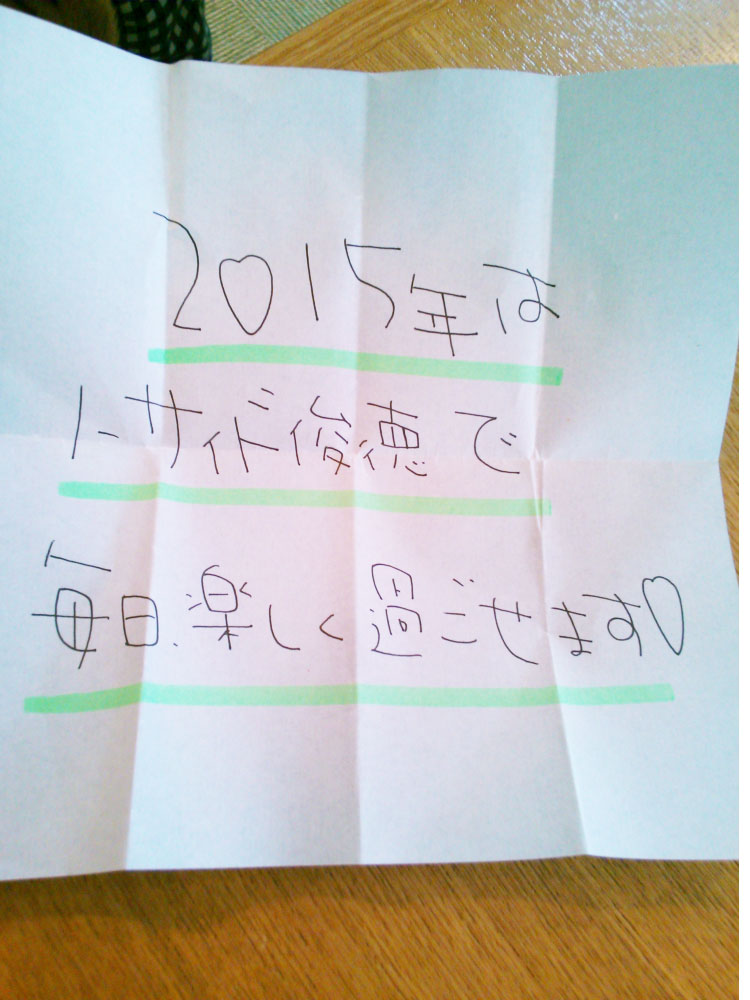 2015年は
トーサイド俊徳で
毎日、楽しく過ごせます♡